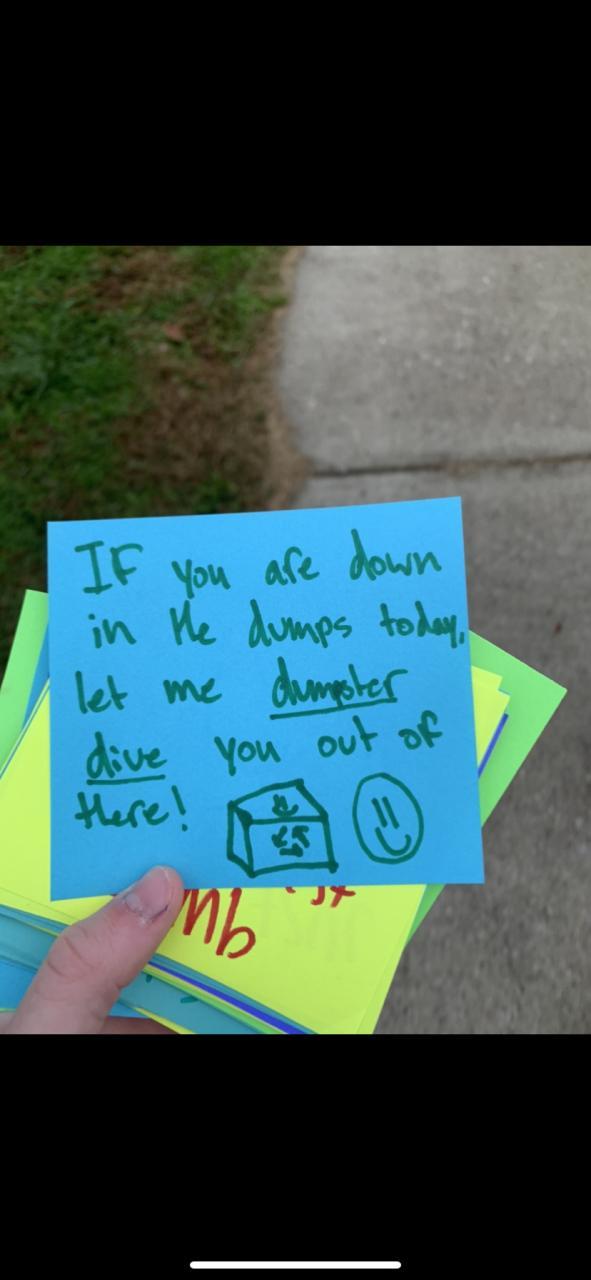 IF you are down
in the dumps today,
let me dumpster
dive you out of
there!